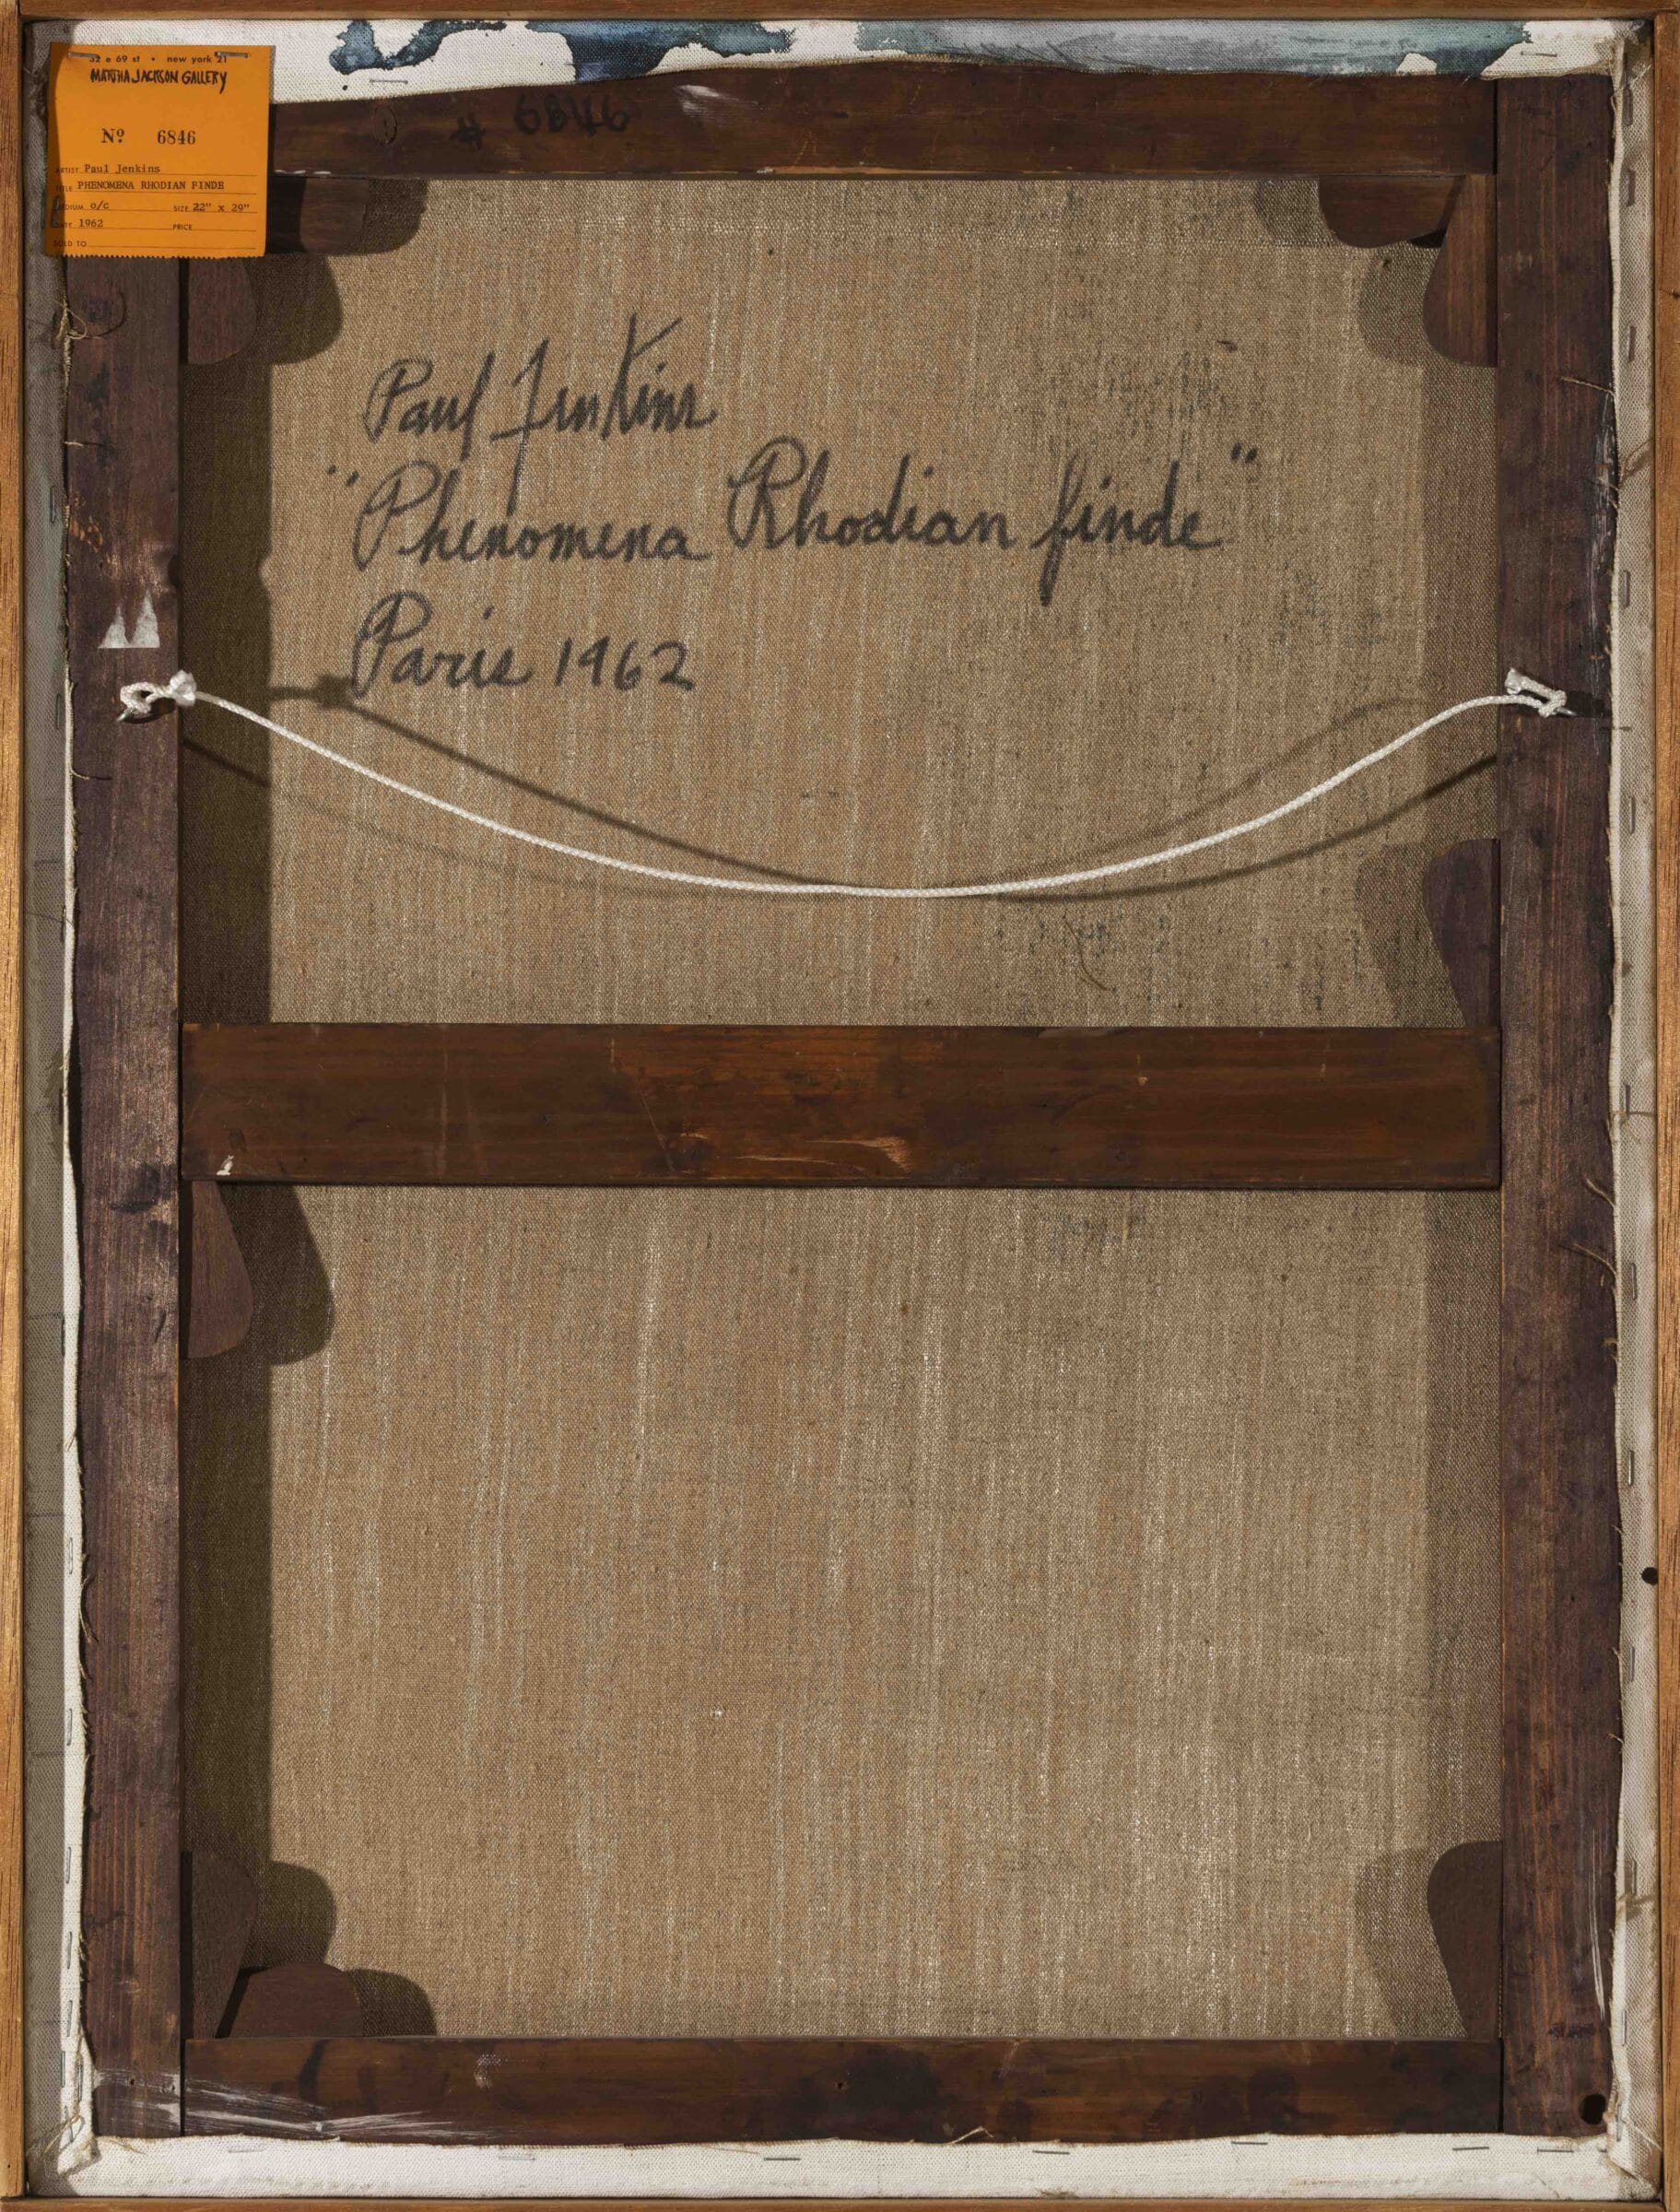 32 e 69 st • new york 21
MARTHA JACKSON GALLERY
Nº 6846
ARTIST Paul Jenkins
TITLE PHENOMENA RHODIAN FINDE
MEDIUM o/c SIZE 22" x 29"
DATE 1962 PRICE
SOLD TO
# 6846
Paul Jenkins
"Phenomena Rhodian finde"
Paris 1962